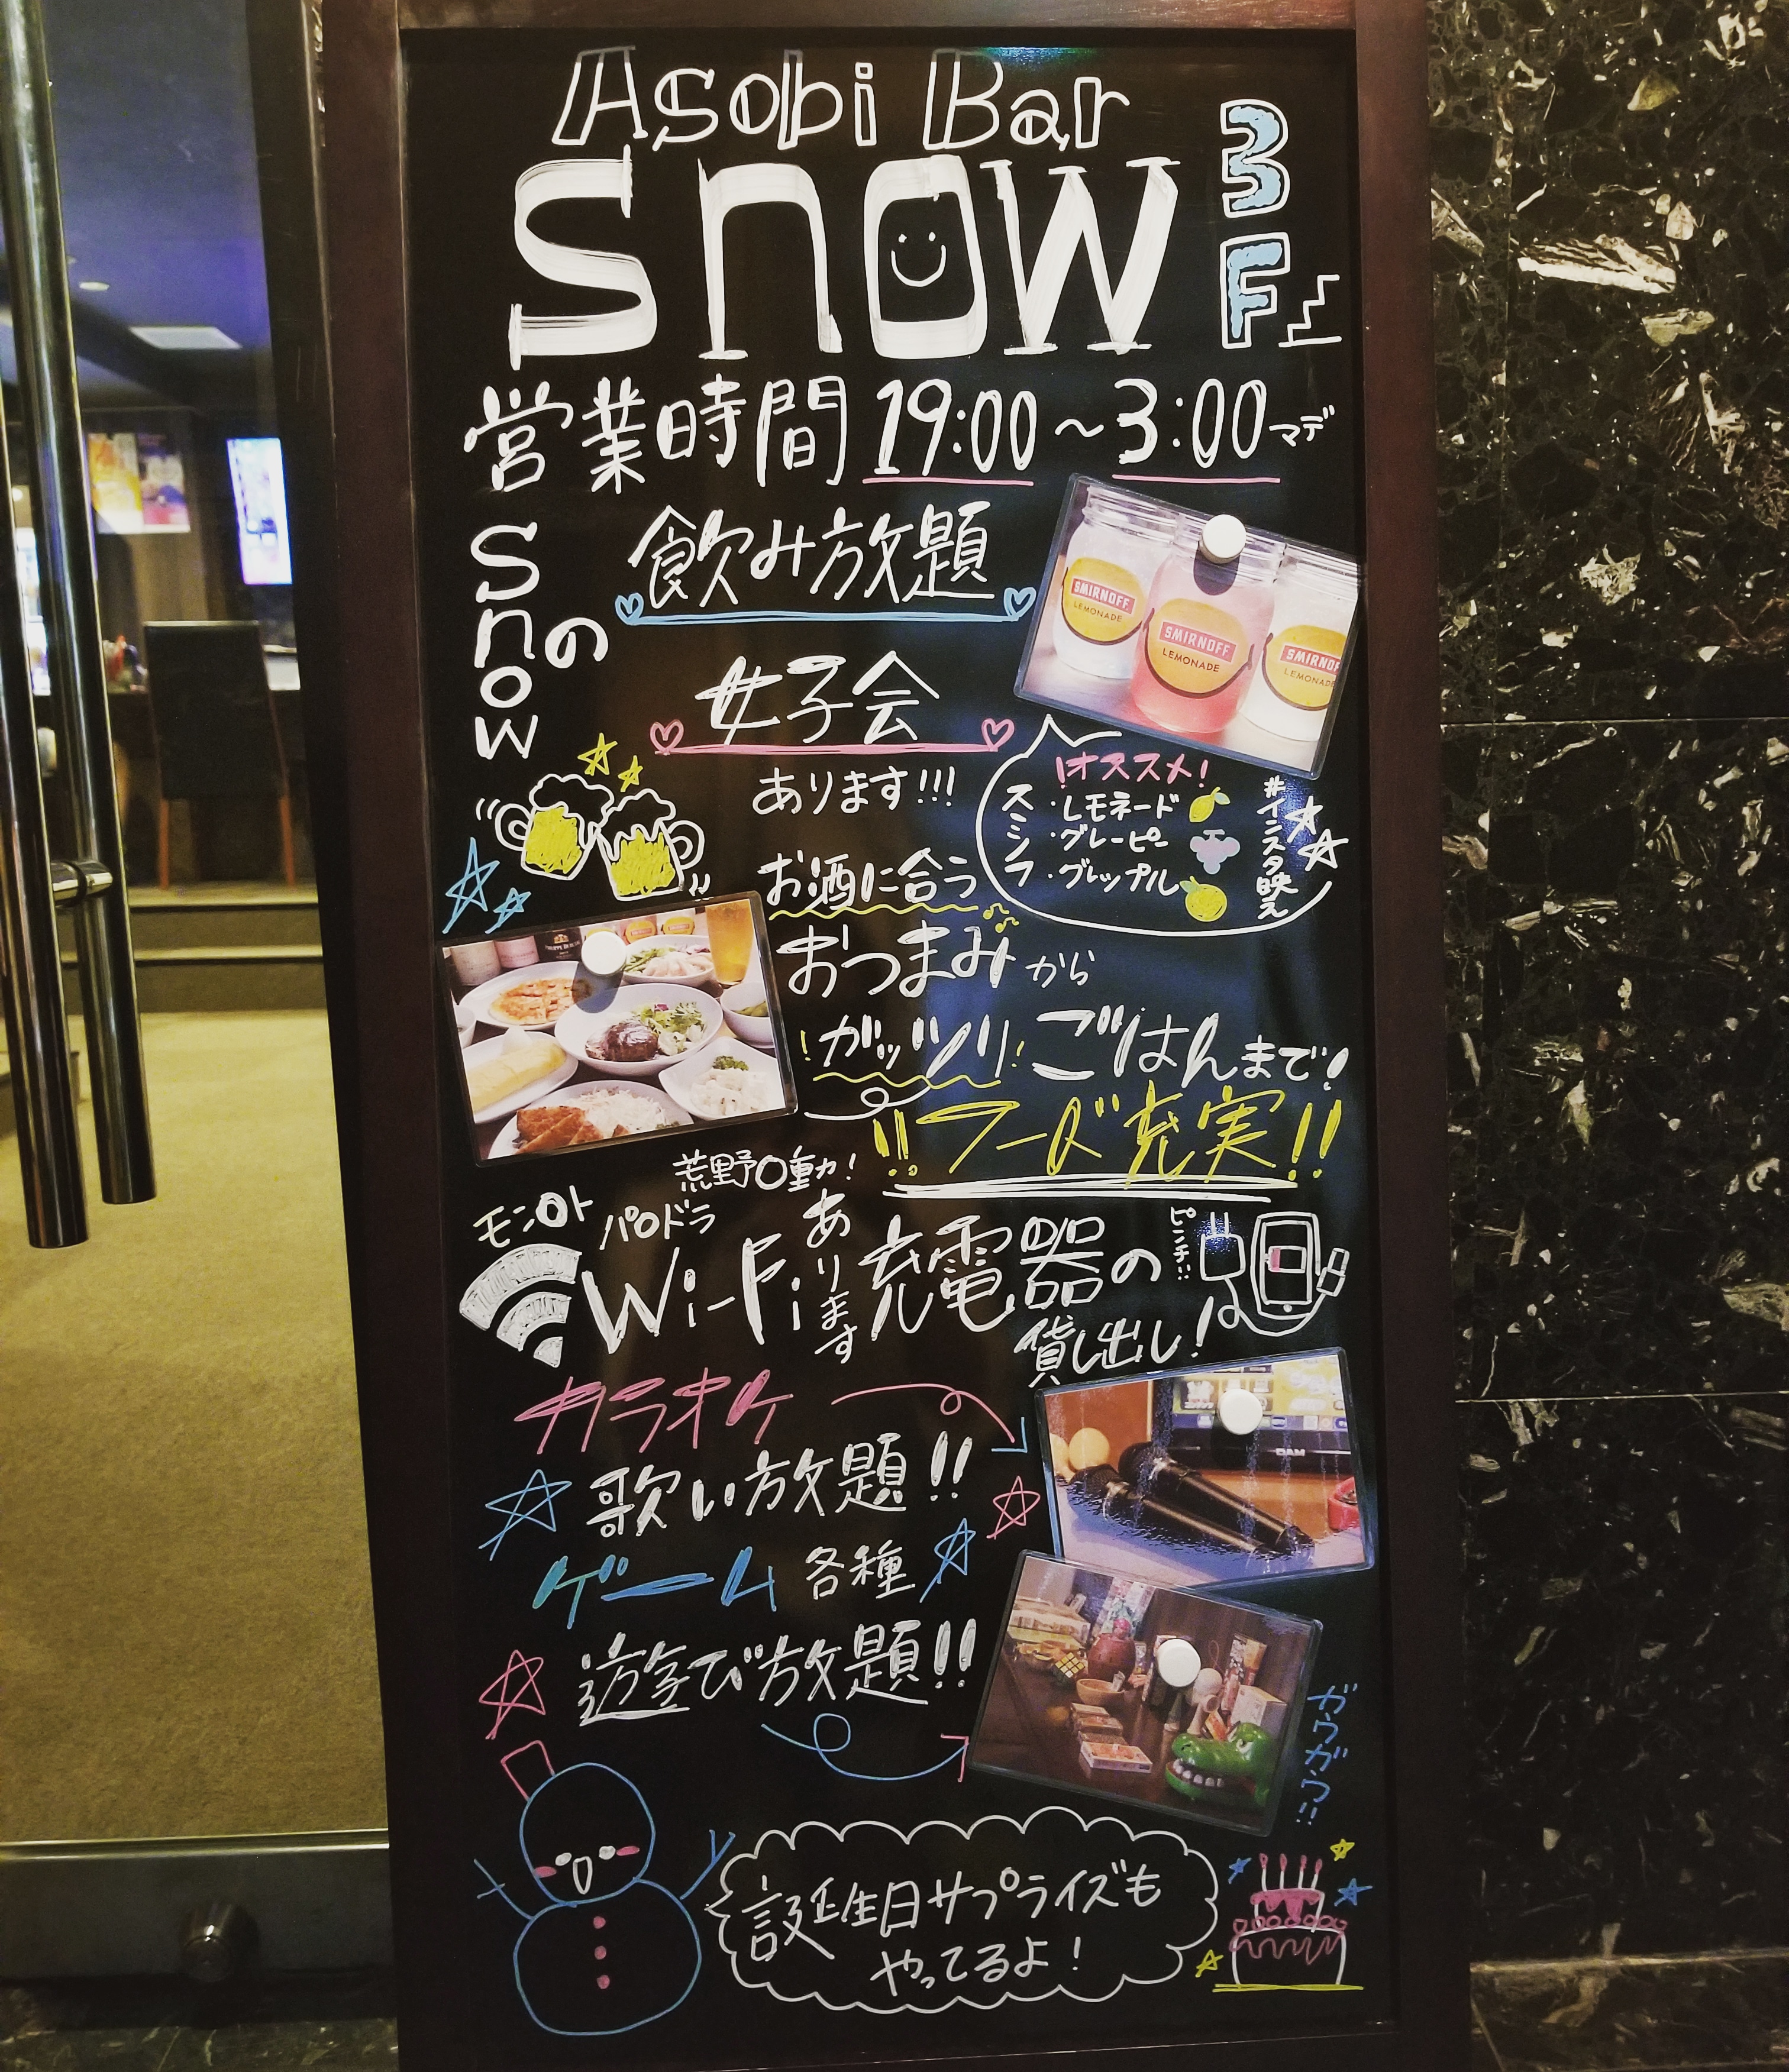 Asobi Bar
snow
3F
営業時間 19:00〜3:00マデ
snowの
飲み放題
女子会
あります!!!
SMIRNOFF
LEMONADE
SMIRNOFF
LEMONADE
SMIRNOFF
LEMONADE
!オススメ!
スミノフ
・レモネード
・グレーピー
・グレップル
#インスタ映え
お酒に合う
おつまみから
!ガッツリ!ごはんまで!
!!フード充実!!
荒野○動!
モン○ト
パ○ドラ
Wi-Fiあります
充電器の
貸し出し!
ピンチ!!
カラオケ
歌い放題!!
DAM
ゲーム各種
遊び放題!!
ガウガウ!!
誕生日サプライズも
やってるよ!